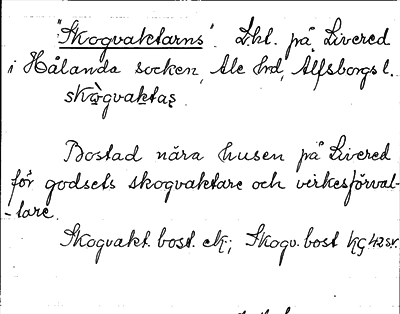 "Skogvaktarns". Lht. på Livered
i Hålanda socken, Ale hrd, Älfsborgs l.
skògvaktaş
Bostad nära husen på Livered
för godsets skogvaktare och virkesförval-
-tare.
Skogvakt. bost. ek; Skogv. bost